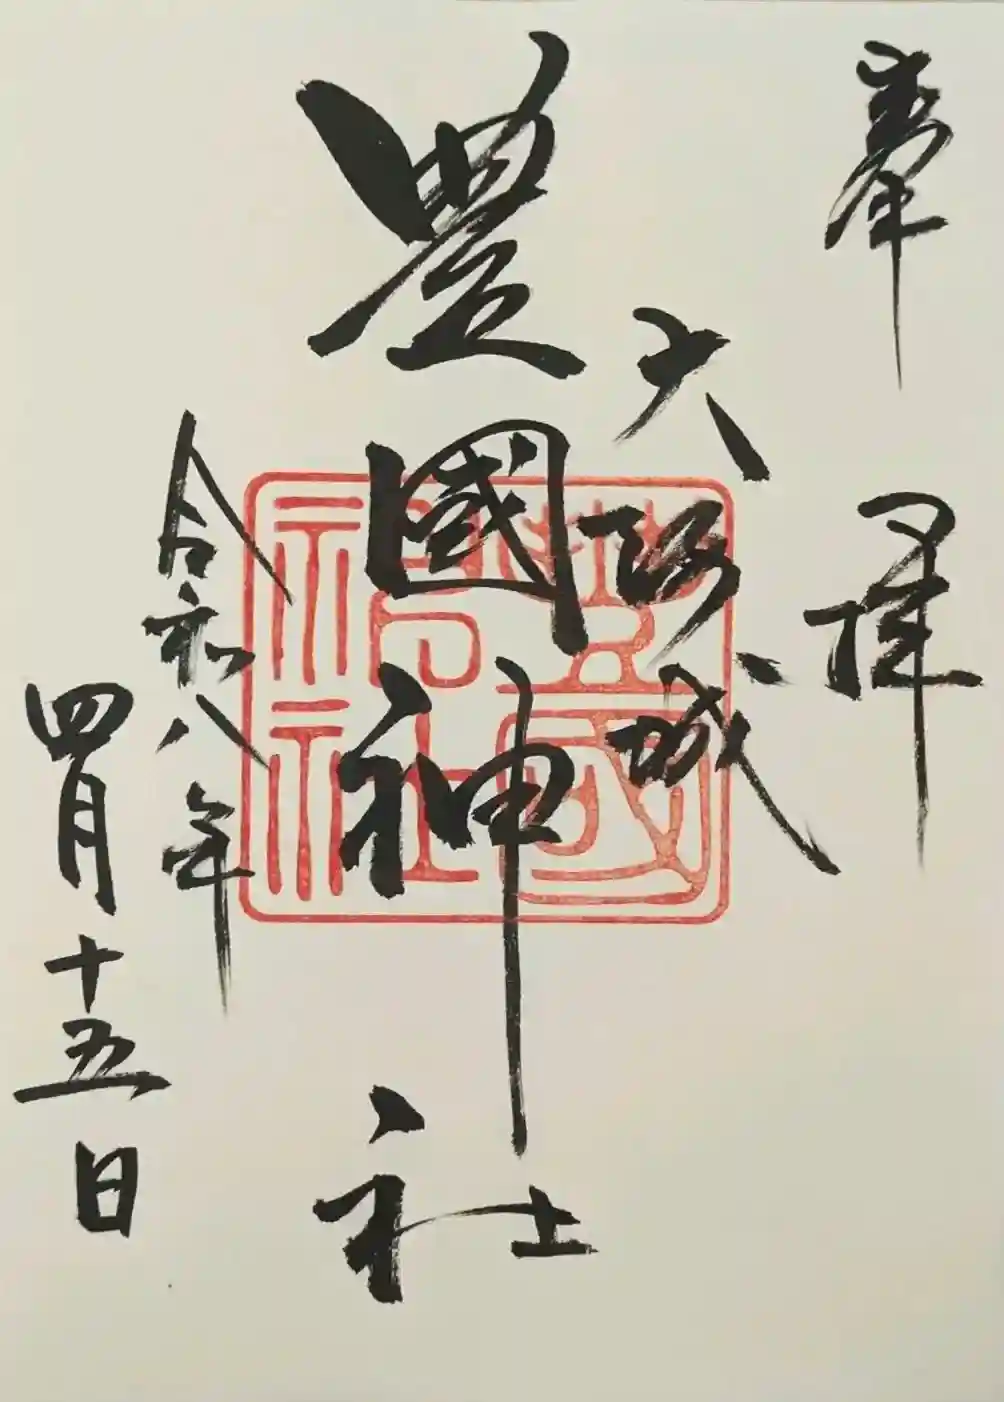 奉拝
大阪城
豊國神社
令和八年
四月十五日
豊國神社